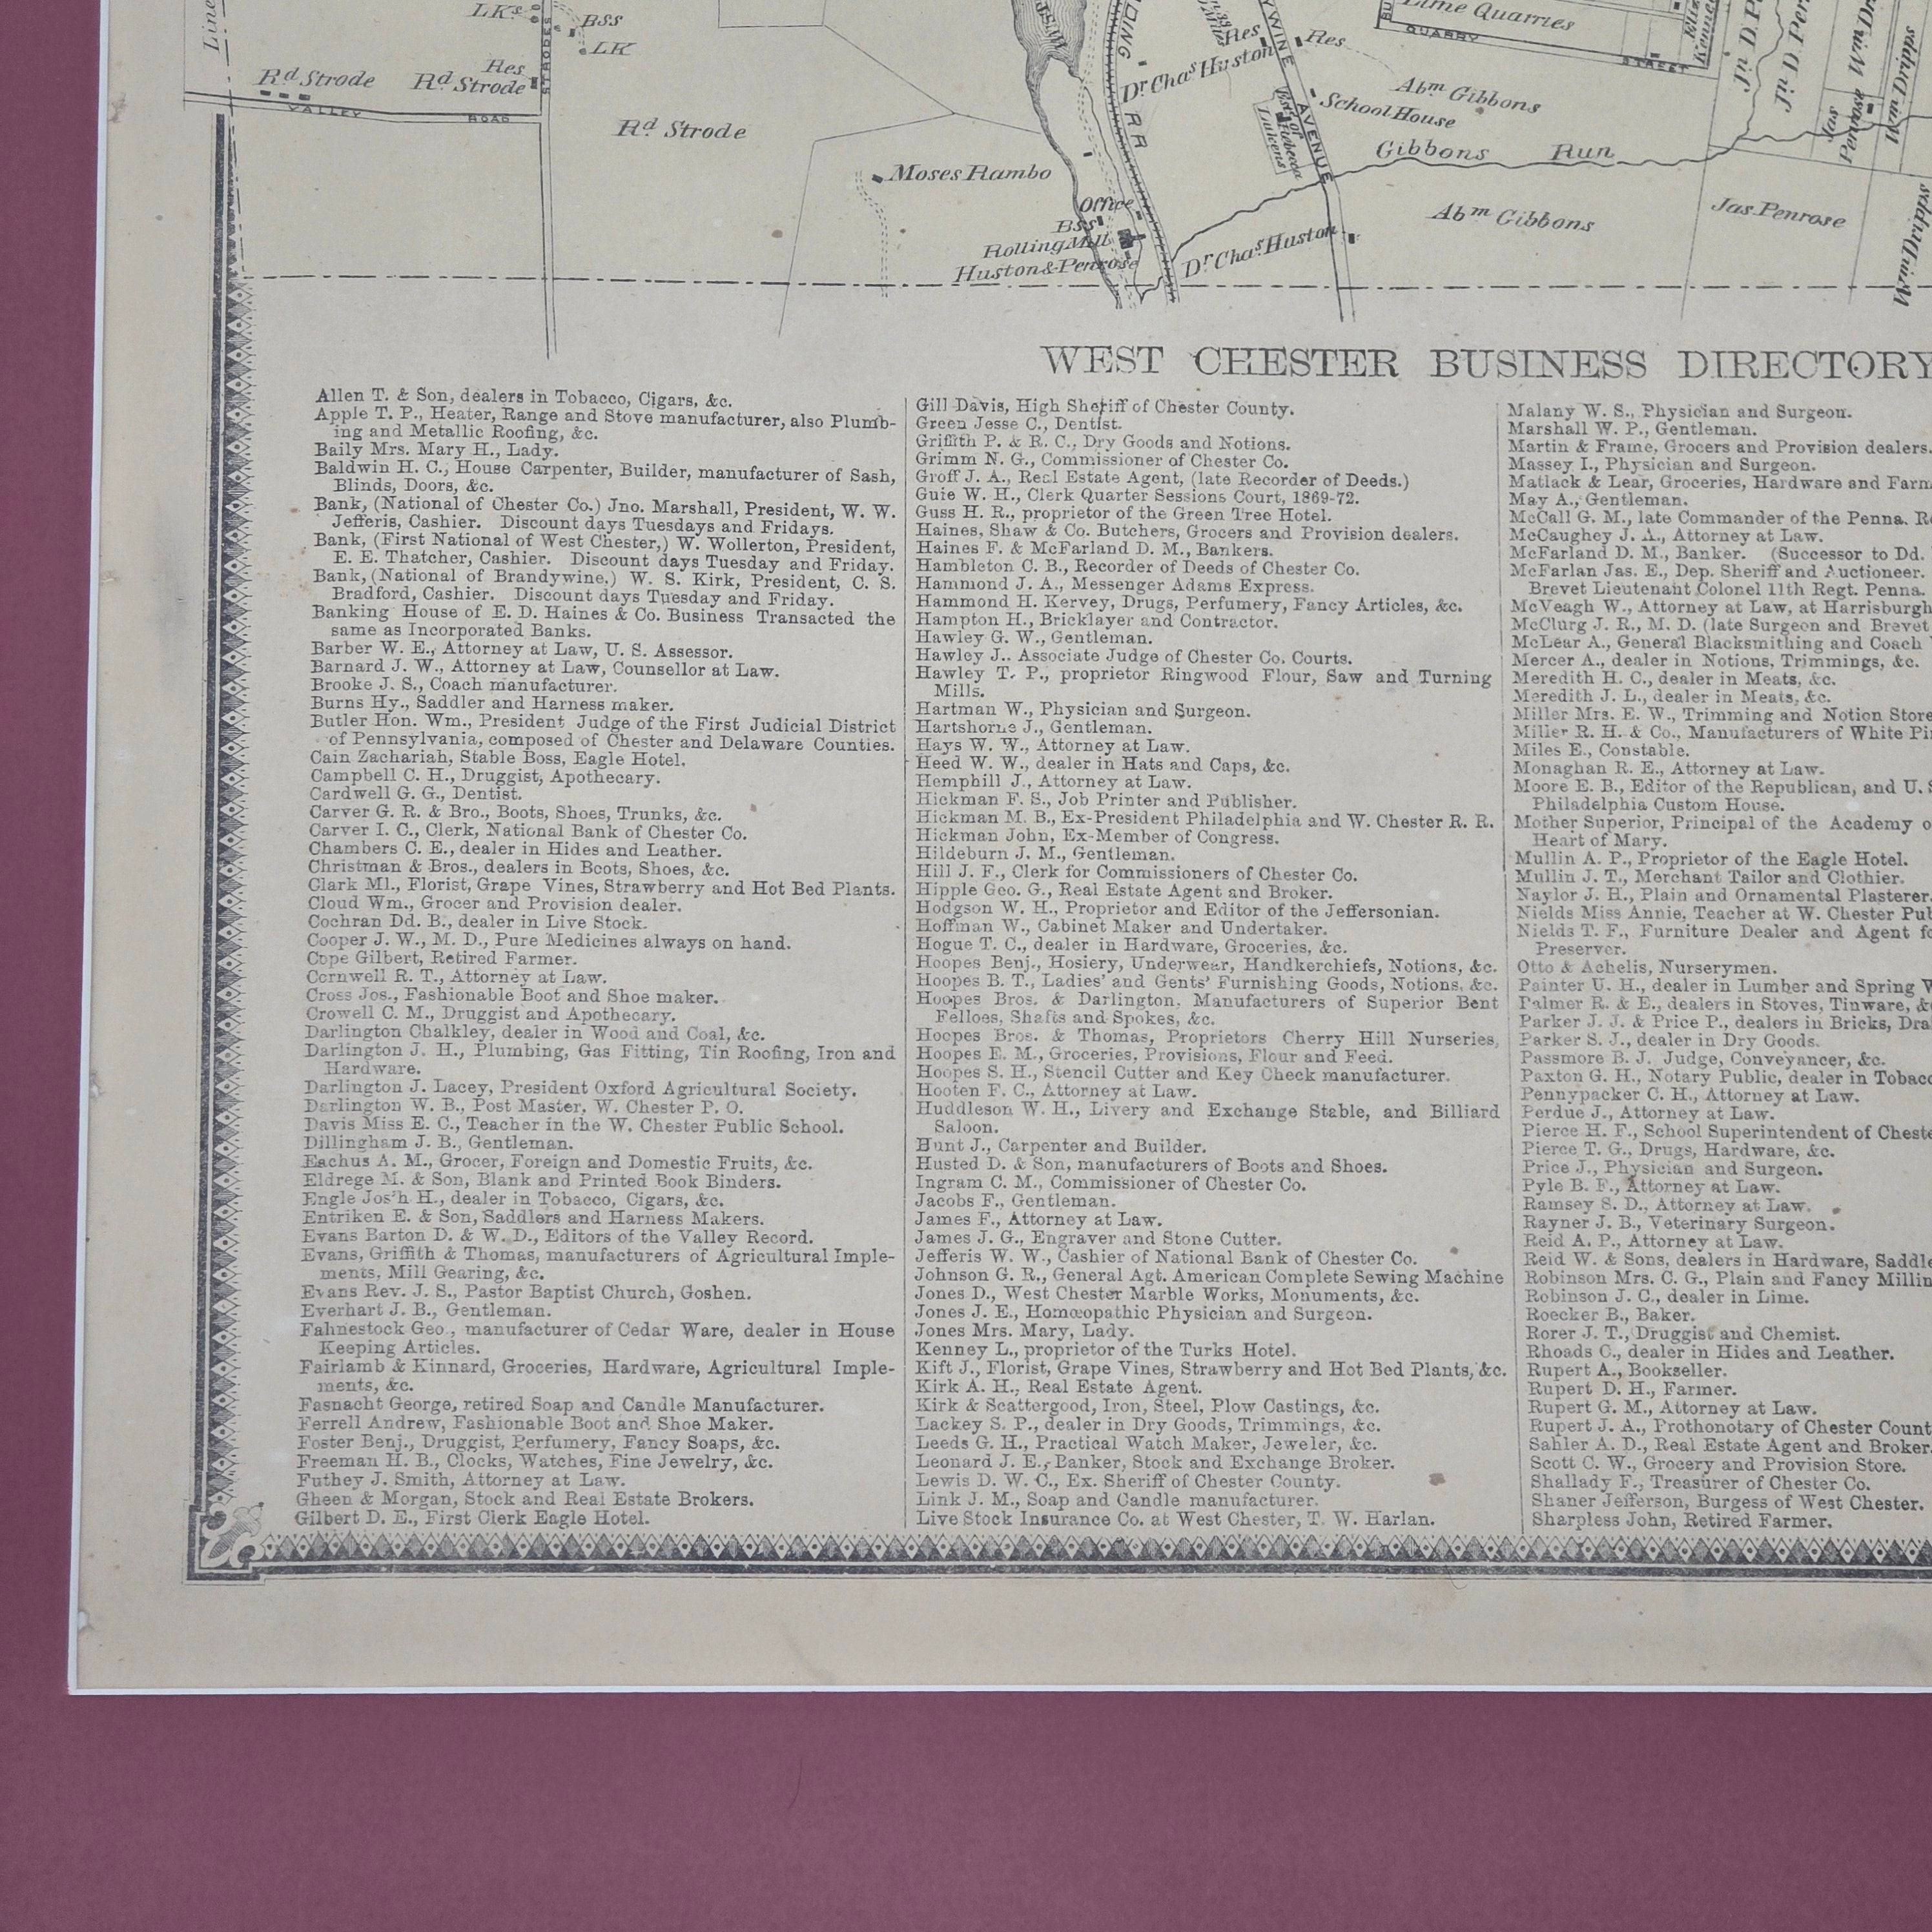 Line
LKs
BSS
LK
STRODES
Rd Strode
Res
Rd Strode
VALLEY ROAD
Rd. Strode
Moses Rambo
WEST
DING RR
Office
BSS
Rolling Mill
Huston & Penrose
Res
Dr Chas Huston
YWINE AVENUE
Res
Est of Rebecca Lukens
Dr Chas Huston
Lime Quarries
QUARRY STREET
Abm Gibbons
School House
Gibbons Run
Abm Gibbons
Jas Penrose
Jas Penrose
Jn D. P
Jn D. Per
Wm Dripps
Wm Dripps
WEST CHESTER BUSINESS DIRECTORY
Allen T. & Son, dealers in Tobacco, Cigars, &c.
Apple T. P., Heater, Range and Stove manufacturer, also Plumb-
ing and Metallic Roofing, &c.
Baily Mrs. Mary H., Lady.
Baldwin H. C., House Carpenter, Builder, manufacturer of Sash,
Blinds, Doors, &c.
Bank, (National of Chester Co.) Jno. Marshall, President, W. W.
Jefferis, Cashier. Discount days Tuesdays and Fridays.
Bank, (First National of West Chester,) W. Wollerton, President,
E. E. Thatcher, Cashier. Discount days Tuesday and Friday.
Bank, (National of Brandywine,) W. S. Kirk, President, C. S.
Bradford, Cashier. Discount days Tuesday and Friday.
Banking House of E. D. Haines & Co. Business Transacted the
same as Incorporated Banks.
Barber W. E., Attorney at Law, U. S. Assessor.
Barnard J. W., Attorney at Law, Counsellor at Law.
Brooke J. S., Coach manufacturer.
Burns Hy., Saddler and Harness maker.
Butler Hon. Wm., President Judge of the First Judicial District
of Pennsylvania, composed of Chester and Delaware Counties.
Cain Zachariah, Stable Boss, Eagle Hotel.
Campbell C. H., Druggist, Apothecary.
Cardwell G. G., Dentist.
Carver G. R. & Bro., Boots, Shoes, Trunks, &c.
Carver I. C., Clerk, National Bank of Chester Co.
Chambers C. E., dealer in Hides and Leather.
Christman & Bros., dealers in Boots, Shoes, &c.
Clark Ml., Florist, Grape Vines, Strawberry and Hot Bed Plants.
Cloud Wm., Grocer and Provision dealer.
Cochran Dd. B., dealer in Live Stock.
Cooper J. W., M. D., Pure Medicines always on hand.
Cope Gilbert, Retired Farmer.
Cornwell R. T., Attorney at Law.
Cross Jos., Fashionable Boot and Shoe maker.
Crowell C. M., Druggist and Apothecary.
Darlington Chalkley, dealer in Wood and Coal, &c.
Darlington J. H., Plumbing, Gas Fitting, Tin Roofing, Iron and
Hardware.
Darlington J. Lacey, President Oxford Agricultural Society.
Darlington W. B., Post Master, W. Chester P. O.
Davis Miss E. C., Teacher in the W. Chester Public School.
Dillingham J. B., Gentleman.
Eachus A. M., Grocer, Foreign and Domestic Fruits, &c.
Eldrege M. & Son, Blank and Printed Book Binders.
Engle Jos'h H., dealer in Tobacco, Cigars, &c.
Entriken E. & Son, Saddlers and Harness Makers.
Evans Barton D. & W. D., Editors of the Valley Record.
Evans, Griffith & Thomas, manufacturers of Agricultural Imple-
ments, Mill Gearing, &c.
Evans Rev. J. S., Pastor Baptist Church, Goshen.
Everhart J. B., Gentleman.
Fahnestock Geo., manufacturer of Cedar Ware, dealer in House
Keeping Articles.
Fairlamb & Kinnard, Groceries, Hardware, Agricultural Imple-
ments, &c.
Fasnacht George, retired Soap and Candle Manufacturer.
Ferrell Andrew, Fashionable Boot and Shoe Maker.
Foster Benj., Druggist, Perfumery, Fancy Soaps, &c.
Freeman H. B., Clocks, Watches, Fine Jewelry, &c.
Futhey J. Smith, Attorney at Law.
Gheen & Morgan, Stock and Real Estate Brokers.
Gilbert D. E., First Clerk Eagle Hotel.
Gill Davis, High Sheriff of Chester County.
Green Jesse C., Dentist.
Griffith P. & R. C., Dry Goods and Notions.
Grimm N. G., Commissioner of Chester Co.
Groff J. A., Real Estate Agent, (late Recorder of Deeds.)
Guie W. H., Clerk Quarter Sessions Court, 1869-72.
Guss H. R., proprietor of the Green Tree Hotel.
Haines, Shaw & Co. Butchers, Grocers and Provision dealers.
Haines F. & McFarland D. M., Bankers.
Hambleton C. B., Recorder of Deeds of Chester Co.
Hammond J. A., Messenger Adams Express.
Hammond H. Kervey, Drugs, Perfumery, Fancy Articles, &c.
Hampton H., Bricklayer and Contractor.
Hawley G. W., Gentleman.
Hawley J., Associate Judge of Chester Co. Courts.
Hawley T. P., proprietor Ringwood Flour, Saw and Turning
Mills.
Hartman W., Physician and Surgeon.
Hartshorne J., Gentleman.
Hays W. W., Attorney at Law.
Heed W. W., dealer in Hats and Caps, &c.
Hemphill J., Attorney at Law.
Hickman F. S., Job Printer and Publisher.
Hickman M. B., Ex-President Philadelphia and W. Chester R. R.
Hickman John, Ex-Member of Congress.
Hildeburn J. M., Gentleman.
Hill J. F., Clerk for Commissioners of Chester Co.
Hipple Geo. G., Real Estate Agent and Broker.
Hodgson W. H., Proprietor and Editor of the Jeffersonian.
Hoffman W., Cabinet Maker and Undertaker.
Hogue T. C., dealer in Hardware, Groceries, &c.
Hoopes Benj., Hosiery, Underwear, Handkerchiefs, Notions, &c.
Hoopes B. T., Ladies' and Gents' Furnishing Goods, Notions, &c.
Hoopes Bros. & Darlington, Manufacturers of Superior Bent
Felloes, Shafts and Spokes, &c.
Hoopes Bros. & Thomas, Proprietors Cherry Hill Nurseries,
Hoopes E. M., Groceries, Provisions, Flour and Feed.
Hoopes S. H., Stencil Cutter and Key Check manufacturer.
Hooten F. C., Attorney at Law.
Huddleson W. H., Livery and Exchange Stable, and Billiard
Saloon.
Hunt J., Carpenter and Builder.
Husted D. & Son, manufacturers of Boots and Shoes.
Ingram C. M., Commissioner of Chester Co.
Jacobs F., Gentleman.
James F., Attorney at Law.
James J. G., Engraver and Stone Cutter.
Jefferis W. W., Cashier of National Bank of Chester Co.
Johnson G. R., General Agt. American Complete Sewing Machine
Jones D., West Chester Marble Works, Monuments, &c.
Jones J. E., Homœopathic Physician and Surgeon.
Jones Mrs. Mary, Lady.
Kenney L., proprietor of the Turks Hotel.
Kift J., Florist, Grape Vines, Strawberry and Hot Bed Plants, &c.
Kirk A. H., Real Estate Agent.
Kirk & Scattergood, Iron, Steel, Plow Castings, &c.
Lackey S. P., dealer in Dry Goods, Trimmings, &c.
Leeds G. H., Practical Watch Maker, Jeweler, &c.
Leonard J. E., Banker, Stock and Exchange Broker.
Lewis D. W. C., Ex. Sheriff of Chester County.
Link J. M., Soap and Candle manufacturer.
Live Stock Insurance Co. at West Chester, T. W. Harlan.
Malany W. S., Physician and Surgeon.
Marshall W. P., Gentleman.
Martin & Frame, Grocers and Provision dealers.
Massey I., Physician and Surgeon.
Matlack & Lear, Groceries, Hardware and Farm
May A., Gentleman.
McCall G. M., late Commander of the Penna. R
McCaughey J. A., Attorney at Law.
McFarland D. M., Banker. (Successor to Dd.
McFarlan Jas. E., Dep. Sheriff and Auctioneer.
Brevet Lieutenant Colonel 11th Regt. Penna.
McVeagh W., Attorney at Law, at Harrisburgh
McClurg J. R., M. D. (late Surgeon and Brevet
McLear A., General Blacksmithing and Coach
Mercer A., dealer in Notions, Trimmings, &c.
Meredith H. C., dealer in Meats, &c.
Meredith J. L., dealer in Meats, &c.
Miller Mrs. E. W., Trimming and Notion Store
Miller R. H. & Co., Manufacturers of White Pi
Miles E., Constable.
Monaghan R. E., Attorney at Law.
Moore E. B., Editor of the Republican, and U. S
Philadelphia Custom House.
Mother Superior, Principal of the Academy o
Heart of Mary.
Mullin A. P., Proprietor of the Eagle Hotel.
Mullin J. T., Merchant Tailor and Clothier.
Naylor J. H., Plain and Ornamental Plasterer.
Nields Miss Annie, Teacher at W. Chester Pub
Nields T. F., Furniture Dealer and Agent fo
Preserver.
Otto & Achelis, Nurserymen.
Painter U. H., dealer in Lumber and Spring W
Palmer R. & E., dealers in Stoves, Tinware, &c
Parker J. J. & Price P., dealers in Bricks, Dra
Parker S. J., dealer in Dry Goods.
Passmore B. J. Judge, Conveyancer, &c.
Paxton G. H., Notary Public, dealer in Tobacc
Pennypacker C. H., Attorney at Law.
Perdue J., Attorney at Law.
Pierce H. F., School Superintendent of Cheste
Pierce T. G., Drugs, Hardware, &c.
Price J., Physician and Surgeon.
Pyle B. F., Attorney at Law.
Ramsey S. D., Attorney at Law.
Rayner J. B., Veterinary Surgeon.
Reid A. P., Attorney at Law.
Reid W. & Sons, dealers in Hardware, Saddle
Robinson Mrs. C. G., Plain and Fancy Millin
Robinson J. C., dealer in Lime.
Roecker B., Baker.
Rorer J. T., Druggist and Chemist.
Rhoads C., dealer in Hides and Leather.
Rupert A., Bookseller.
Rupert D. H., Farmer.
Rupert G. M., Attorney at Law.
Rupert J. A., Prothonotary of Chester Count
Sahler A. D., Real Estate Agent and Broker.
Scott C. W., Grocery and Provision Store.
Shallady F., Treasurer of Chester Co.
Shaner Jefferson, Burgess of West Chester.
Sharpless John, Retired Farmer.